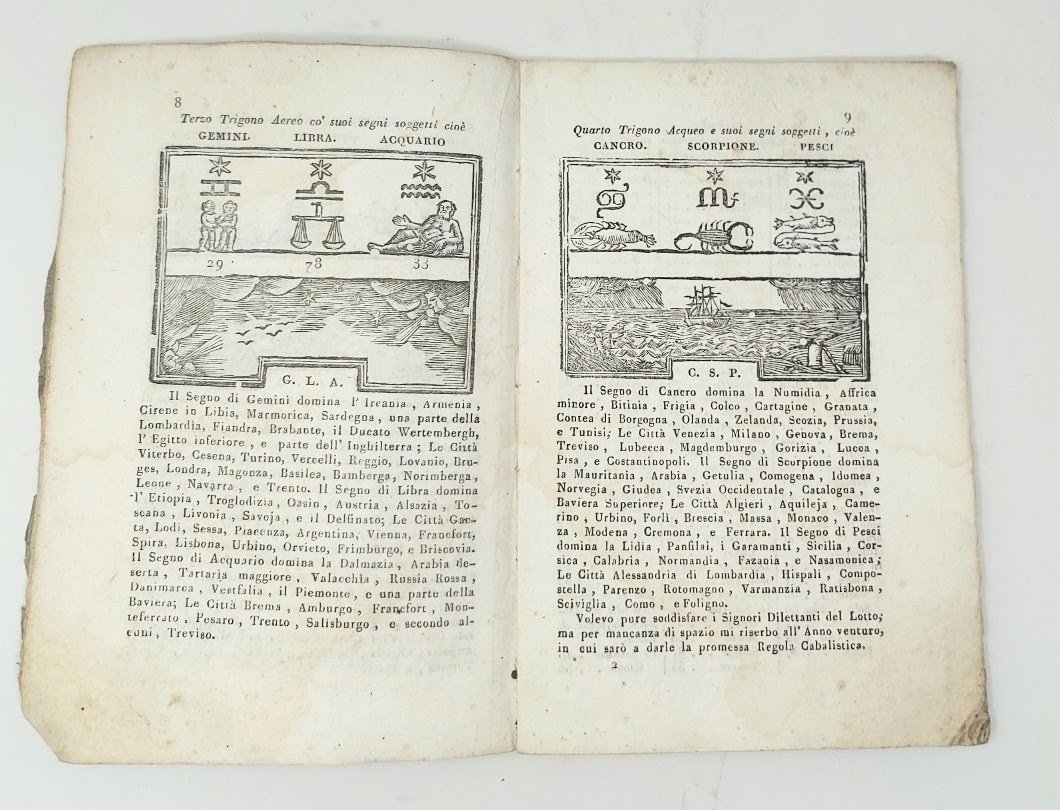 8
Terzo Trigono Aereo co' suoi segni soggetti cioè
GEMINI. LIBRA. ACQUARIO
29 78 33
G. L. A.
Il Segno di Gemini domina l'Ircania, Armenia,
Cirene in Libia, Marmorica, Sardegna, una parte della
Lombardìa, Fiandra, Brabante, il Ducato Wertembergh,
l'Egitto inferiore, e parte dell'Inghilterra; Le Città
Viterbo, Cesena, Turino, Vercelli, Reggio, Lovanio, Bru-
ges, Londra, Magonza, Basilea, Bamberga, Norimberga,
Leone, Navarra, e Trento. Il Segno di Libra domina
l'Etiopia, Troglodizia, Oasin, Austria, Alsazia, To-
scana, Livonia, Savoja, e il Delfinato; Le Città Gae-
ta, Lodi, Sessa, Piacenza, Argentina, Vienna, Francfort,
Spira, Lisbona, Urbino, Orvieto, Frimburgo, e Briscovia.
Il Segno di Acquario domina la Dalmazia, Arabia de-
serta, Tartaria maggiore, Valacchìa, Russia Rossa,
Danimarca, Vestfalia, il Piemonte, e una parte della
Baviera; Le Città Brema, Amburgo, Francfort, Mon-
teferrato, Pesaro, Trento, Salisburgo, e secondo al-
cuni, Treviso.
9
Quarto Trigono Acqueo e suoi segni soggetti, cioè
CANCRO. SCORPIONE. PESCI
C. S. P.
Il Segno di Cancro domina la Numidia, Affrica
minore, Bitinia, Frigia, Colco, Cartagine, Granata,
Contea di Borgogna, Olanda, Zelanda, Scozia, Prussia,
e Tunisi; Le Città Venezia, Milano, Genova, Brema,
Treviso, Lubecca, Magdemburgo, Gorizia, Lucca,
Pisa, e Costantinopoli. Il Segno di Scorpione domina
la Mauritania, Arabia, Getulia, Comogena, Idomea,
Norvegia, Giudea, Svezia Occidentale, Catalogna, e
Baviera Superiore; Le Città Algieri, Aquileja, Came-
rino, Urbino, Forlì, Brescia, Massa, Monaco, Valen-
za, Modena, Cremona, e Ferrara. Il Segno di Pesci
domina la Lidia, Panfilai, i Garamanti, Sicilia, Cor-
sica, Calabria, Normandia, Fazania, e Nasamonica;
Le Città Alessandria di Lombardia, Hispali, Compo-
stella, Parenzo, Rotomagno, Varmanzia, Ratisbona,
Sciviglia, Como, e Foligno.
Volevo pure soddisfare i Signori Dilettanti del Lotto;
ma per mancanza di spazio mi riserbo all'Anno venturo,
in cui sarò a darle la promessa Regola Cabalistica.
2